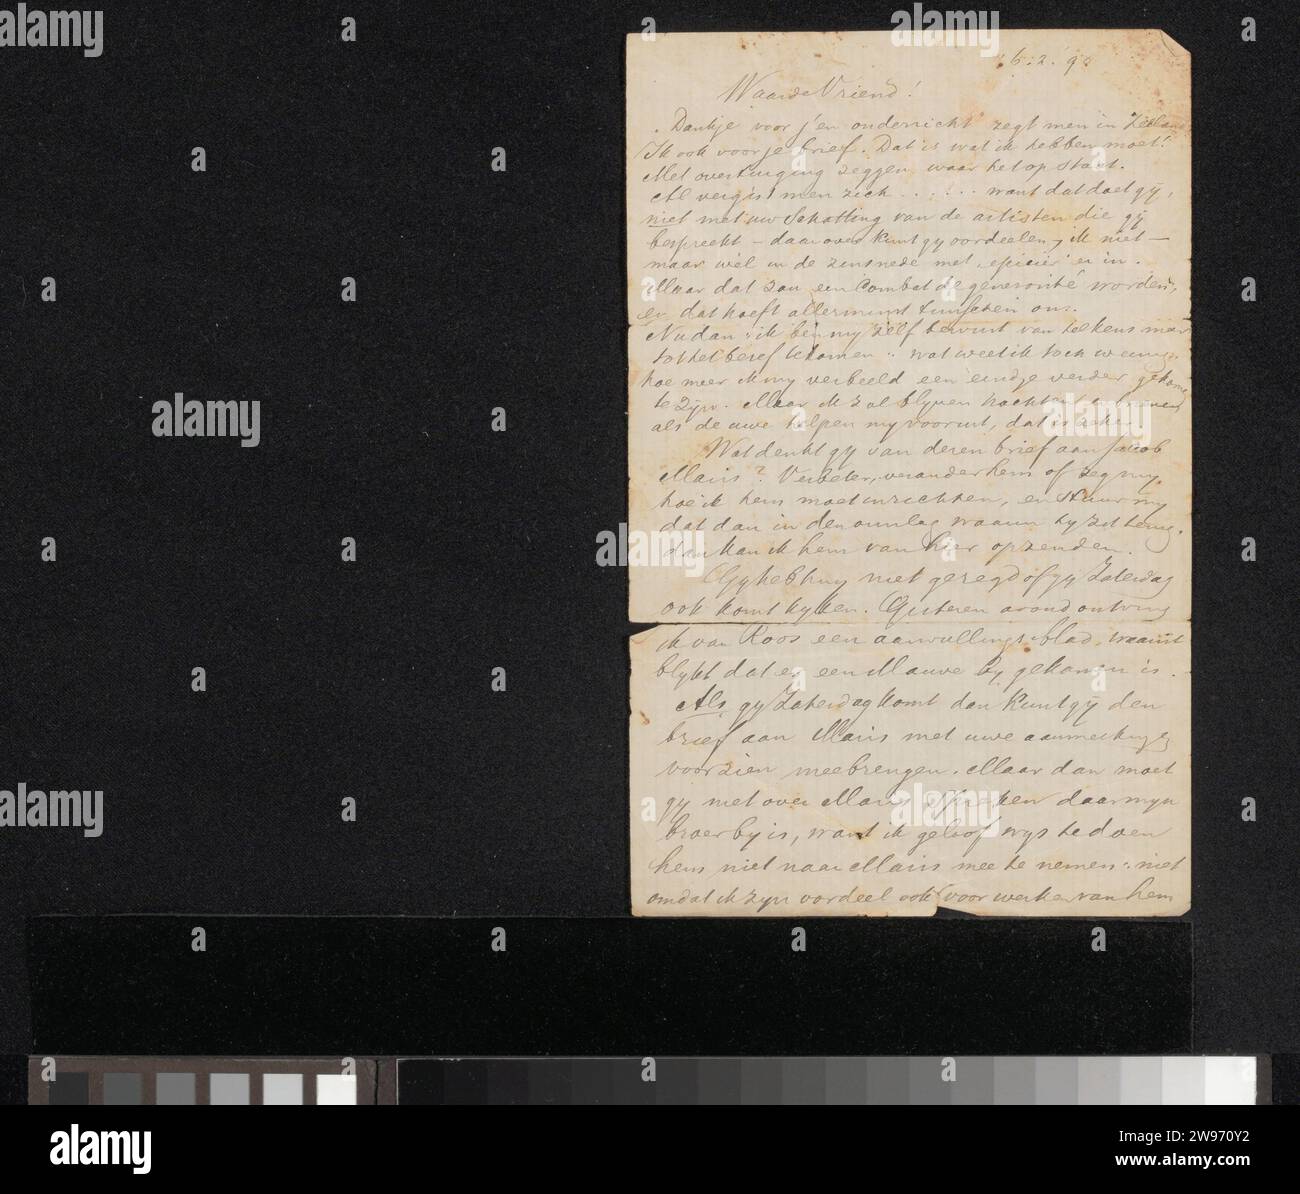 6.2.'90
Waarde Vriend!
Dankje voor j'en onderricht zegt men in Zeeland
Ik ook voor je brief. Dat is wat ik hebben moet!
Met overtuiging zeggen, waar het op staat.
Al vergist men zich ..... want dat doet gij,
niet met uw schatting van de artisten die gij
bespreekt – daarover kunt gy oordeelen, ik niet –
maar wèl in de zinsnede met "epicier" er in.
Maar dat zou een Combat de générosité worden,
en dat hoeft allerminst tusschen ons.
Nu dan: ik ben my zelf bewust van telkens meer
tot het besef te komen: wat weet ik toch weinig,
hoe meer ik my verbeeld een eindje verder gekomen
te zijn. Maar ik zal blyven trachten en
als de uwe helpen my vooruit, dat is zeker.
Wat denkt gy van deren brief aan Jacob
Maris? Verbeter, verander hem of zeg my
hoe ik hem moet inrichten, en stuur my
dat dan in den omslag waarin hy zit terug.
dan kan ik hem van hier opzenden.
Gy hebt my niet gezegd of gy Zaterdag
ook komt kyken. Gisteren avond ontving
ik van Roos een aanvullings blad, waaruit
blykt dat er een Mauve by gekomen is.
Als gy Zaterdag komt dan kunt gy den
brief aan Maris met uwe aanmerkingen
voorzien meebrengen. Maar dan moet
gy niet over Maris spreken daar myn
broer by is, want ik geloof wys te doen
hem niet naar Maris mee te nemen: niet
omdat ik zyn oordeel ook voor werken van hem
alamy
a
alamy
Image ID: 2W970Y2
www.alamy.com